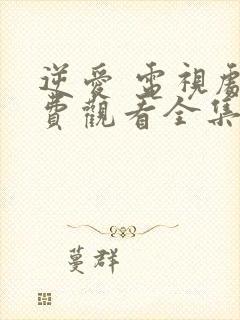 逆愛 電視劇
費觀看全集
蔓群